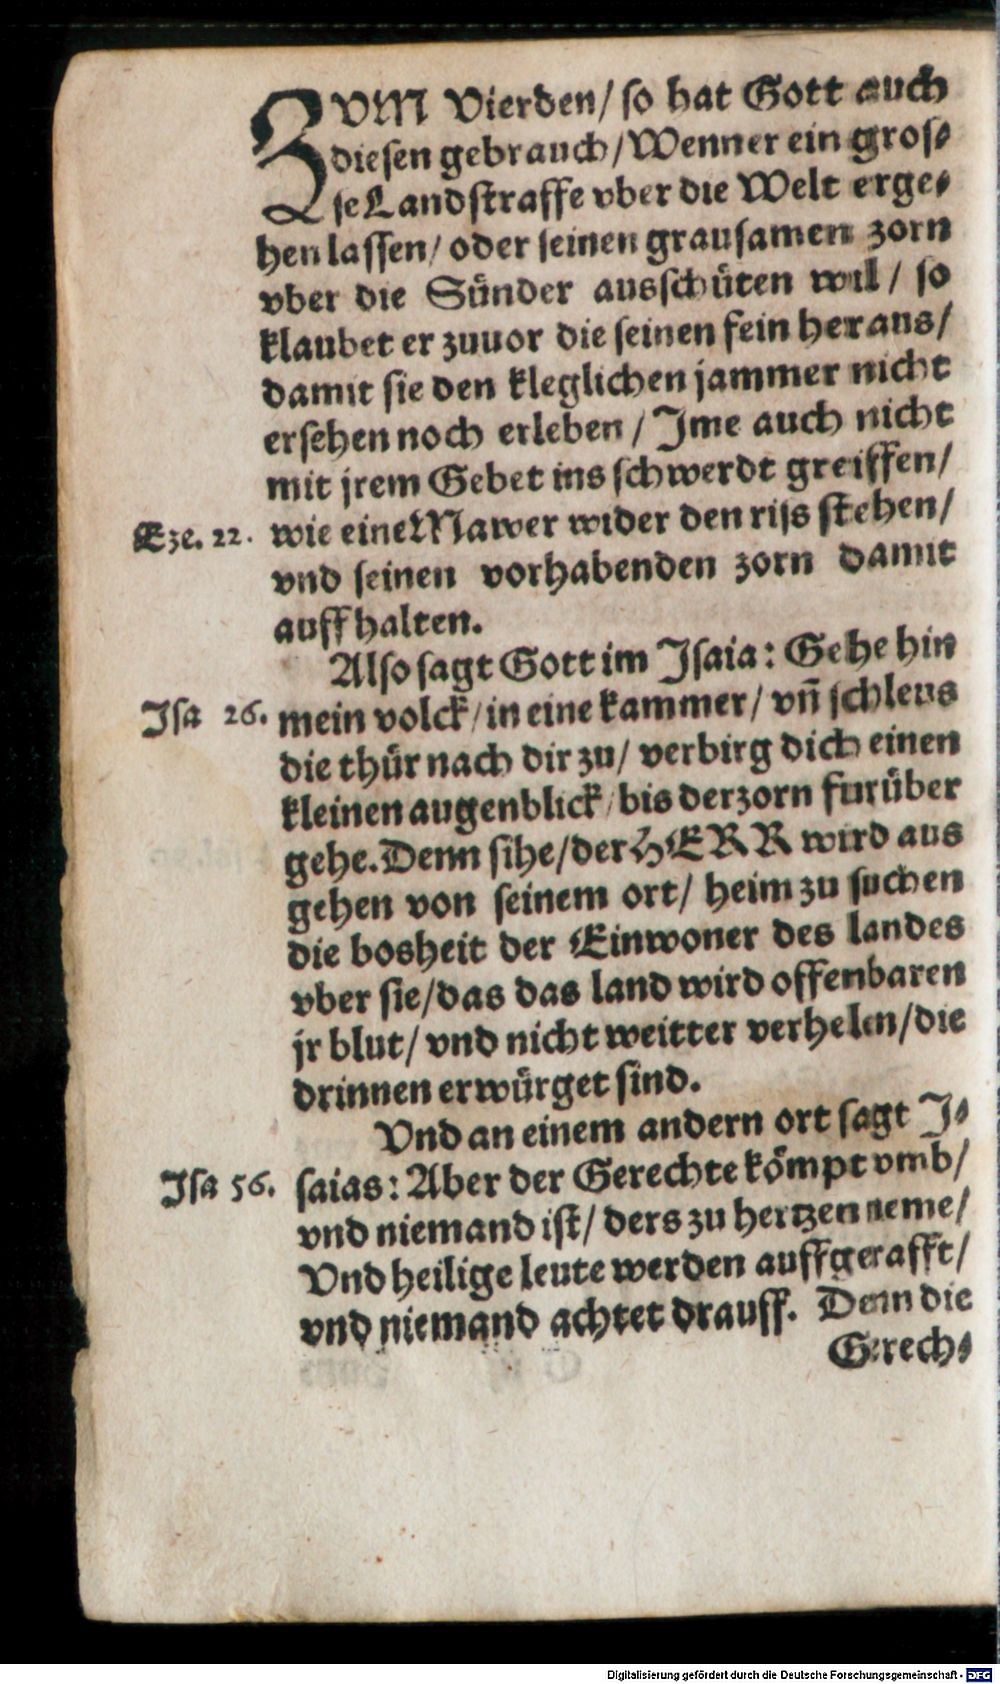 ZVM Vierden/ so hat Gott auch
diesen gebrauch/ Wenner ein gros⸗
se Landstraffe vber die Welt erge⸗
hen lassen/ oder seinen grausamen zorn
vber die Sünder ausschüten wil/ so
klaubet er zuuor die seinen fein heraus/
damit sie den kleglichen jammer nicht
ersehen noch erleben/ Ime auch nicht
mit jrem Gebet ins schwerdt greiffen/
Eze. 22. wie eine Mawer wider den rijs stehen/
vnd seinen vorhabenden zorn damit
auffhalten.
Also sagt Gott im Isaia: Gehe hin
Isa 26. mein volck/ in eine kammer/ vñ schleus
die thür nach dir zu/ verbirg dich einen
kleinen augenblick/ bis der zorn furüber
gehe. Denn sihe/ der HERR wird aus
gehen von seinem ort/ heim zu suchen
die bosheit der Einwoner des landes
vber sie/ das das land wird offenbaren
jr blut/ vnd nicht weitter verhelen/ die
drinnen erwürget sind.
Vnd an einem andern ort sagt I⸗
Isa 56. saias: Aber der Gerechte kömpt vmb/
vnd niemand ist/ ders zu hertzen neme/
Vnd heilige leute werden auffgerafft/
vnd niemand achtet drauff. Denn die
Gerech⸗
Digitalisierung gefördert durch die Deutsche Forschungsgemeinschaft - DFG